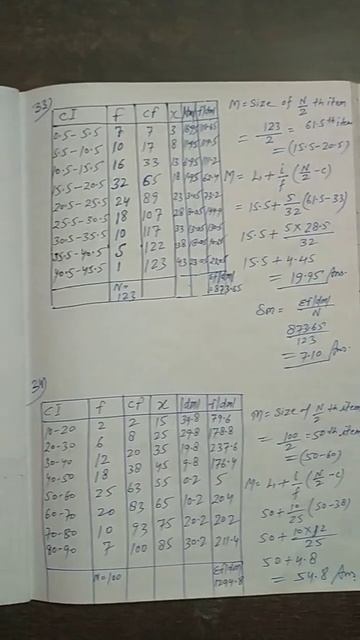 33)
CI f cf x |dm| f|dm|
0.5-5.5 7 7 3
5.5-10.5 10 17 8
10.5-15.5 16 33 13
15.5-20.5 32 65 18
20.5-25.5 24 89 23
25.5-30.5 18 107 28
30.5-35.5 10 117 33
35.5-40.5 5 122 38
40.5-45.5 1 123 43
N= 123 Σf|dm| =873.65
M= Size of N/2 th item
= 123/2 = 61.5th item
= (15.5-20.5)
M = L1 + i/f (N/2 - c)
= 15.5 + 5/32 (61.5-33)
15.5 + 5×28.5/32
15.5 + 4.45
= 19.95 Ans.
δm = Σf|dm|/N
873.65/123
= 7.10 Ans.
34)
CI f cf x |dm| f|dm|
10-20 2 2 15 39.8 79.6
20-30 6 8 25 29.8 178.8
30-40 12 20 35 19.8 237.6
40-50 18 38 45 9.8 176.4
50-60 25 63 55 0.2 5
60-70 20 83 65 10.2 204
70-80 10 93 75 20.2 202
80-90 7 100 85 30.2 211.4
N=100 Σf|dm| 1294.8
M= Size of N/2 th item
= 100/2 = 50th item
= (50-60)
M= L1 + i/f (N/2 - c)
50 + 10/25 (50-38)
50 + 10×12/25
50 + 4.8
= 54.8 Ans